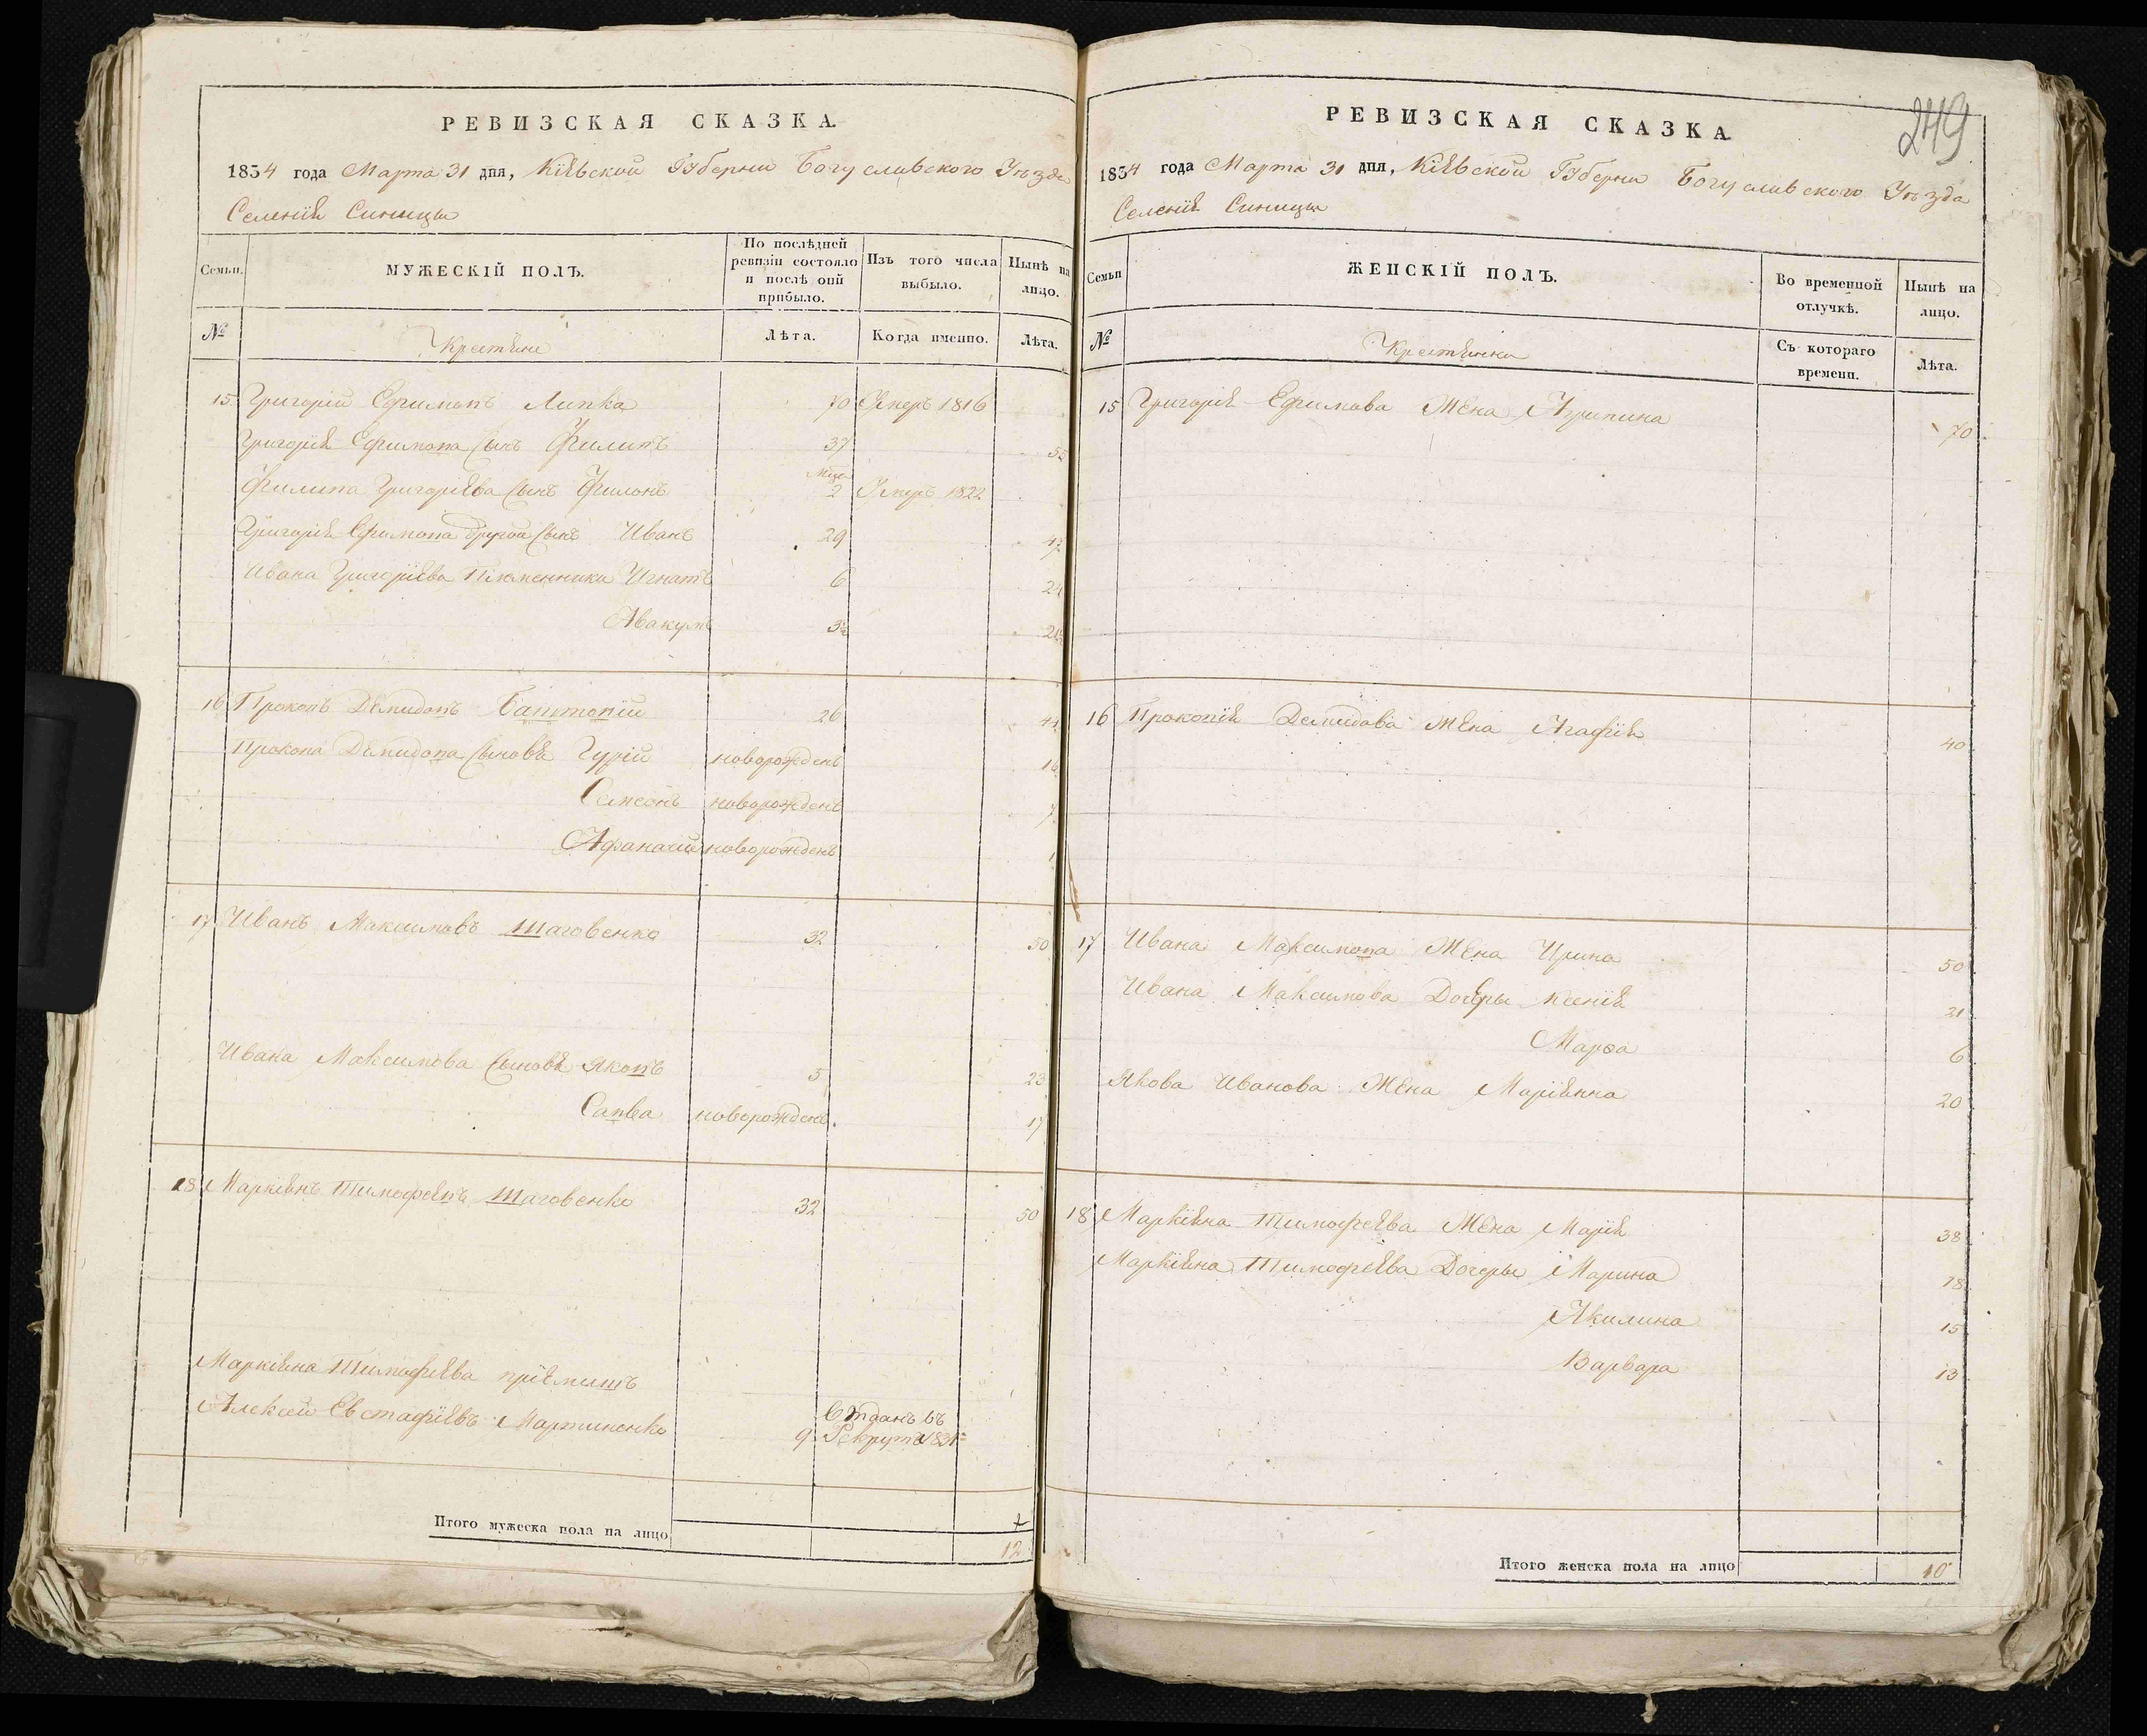 РЕВИЗСКАЯ СКАЗКА.
1834 года Марта 31 дня, Кіевской Губерни Богуславского Уѣзда
Селенія Синицы
Семьи.
МУЖЕСКІЙ ПОЛЪ.
По послѣдней ревизіи состояло и послѣ оной прибыло.
Изъ того числа выбыло.
Нынѣ на лицо.
№
Крестяне
Лѣта.
Когда именно.
Лѣта.
15 Григорій Ефимовъ Липка 70 Умеръ 1816
Григорія Ефимова Сынъ Филипъ 37 55
Филипа Григоріева Сынъ Филонъ Мѣця 2 Умеръ 1822
Григорія Ефимова другой Сынъ Иванъ 29 47
Ивана Григоріева Племенники Игнатъ 6 24
Авакумъ 3½ 21½
16 Прокопъ Демидовъ 26 44
Прокопа Демидова Сыновя Гурій новорожденъ 16
Семенъ новорожденъ 7
Афанасій новорожденъ 1
17 Иванъ Максимовъ Шаговенко 32 50
Ивана Максимова Сыновя Яковъ 5 23
Савва новорожденъ 17
18 Маркіянъ Тимофеевъ Шаговенко 32 50
Маркіяна Тимофеева пріемишъ
Алексей Евстафіевъ Мартиненко 9 Отданъ въ Рекруты 1831
Итого мужеска пола на лицо 12
249
РЕВИЗСКАЯ СКАЗКА.
1834 года Марта 31 дня, Кіевской Губерни Богуславского Уѣзда
Селенія Синицы
Семьи
ЖЕНСКІЙ ПОЛЪ.
Во временной отлучкѣ.
Нынѣ на лицо.
№
Крестянки
Съ котораго времени.
Лѣта.
15 Григорія Ефимова Жена Агрипина 70
16 Прокопія Демидова Жена Агафія 40
17 Ивана Максимова Жена Ирина 50
Ивана Максимова Дочеры Ксенія 21
Марѳа 6
Якова Иванова Жена Маріянна 20
18 Маркіяна Тимофеева Жена Марія 38
Маркіяна Тимофеева Дочеры Марина 18
Акилина 15
Варвара 13
Итого женска пола на лицо 10